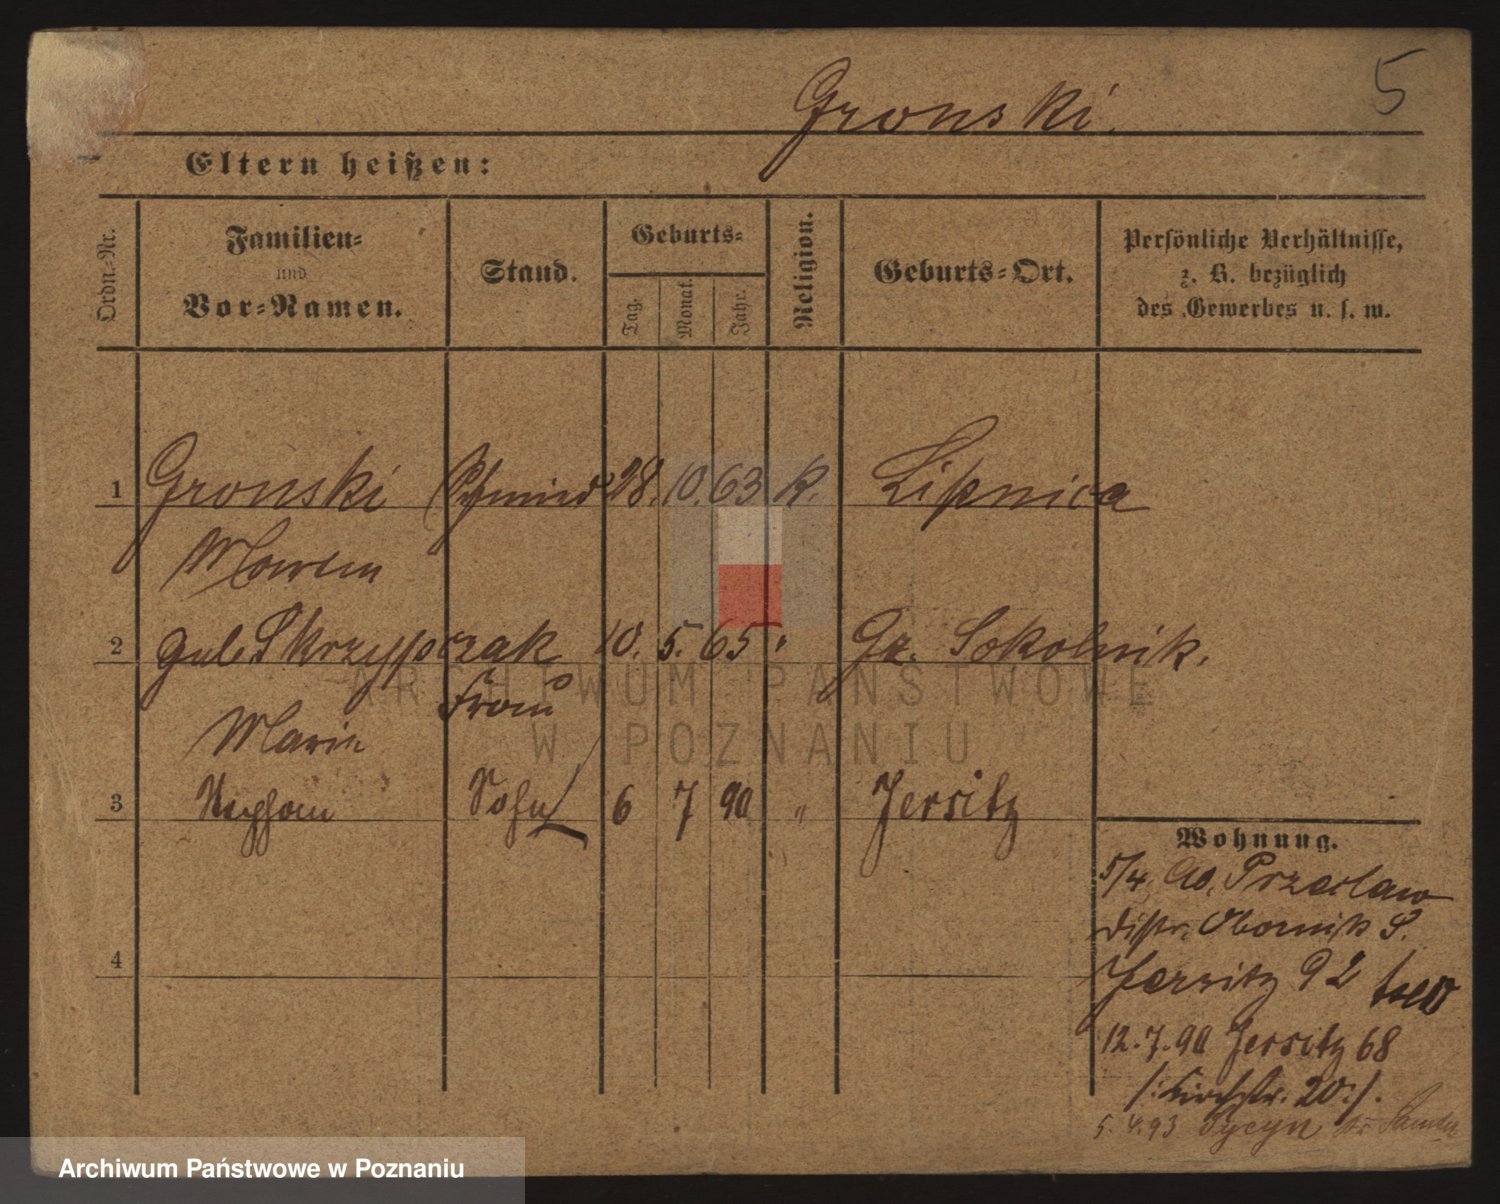 Gronski.
5
Eltern heißen:
Ordn.-Nr.
Familien-
und
Vor-Namen.
Stand.
Geburts-
Tag.
Monat.
Jahr.
Religion.
Geburts-Ort.
Persönliche Verhältnisse,
z. B. bezüglich
des Gewerbes u. s. w.
1 Gronski Schmied 28. 10. 63 K. Lipnica
2 geb. Skrzypczak 10. 5. 65 " Gr. Sokolnik.
Frau
Marie
3 Sohn 6 7 90 " Jersitz
4
Wohnung.
5/4. 90. Przeclaw
distr. Obornik S.
Jersitz 92
12.7.90 Jersitz 68
/: Kirchstr. 20 :/.
5.4.93
ARCHIWUM PAŃSTWOWE
W POZNANIU
Archiwum Państwowe w Poznaniu